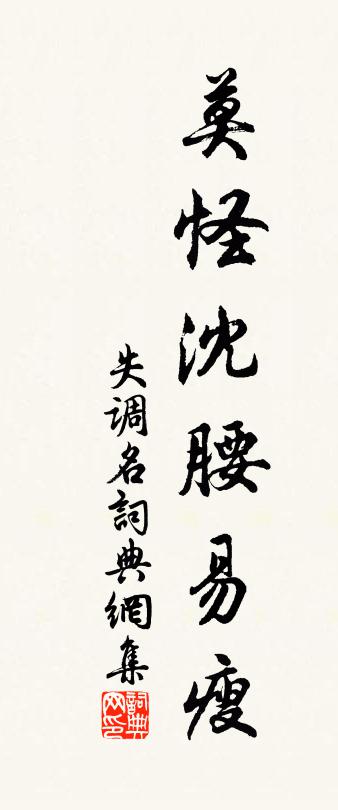 莫怪沈腰易瘦
失調名詞典網集
詞典网印